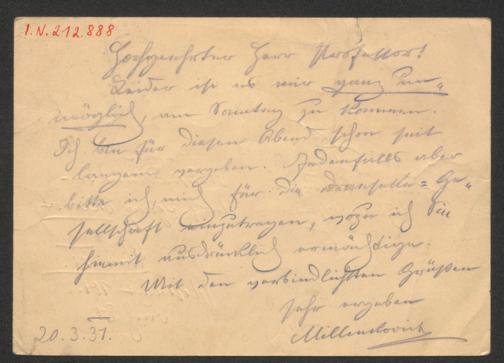 I.N. 212.888
Hochgeehrter Herr Professor!
Leider ist es mir ganz un-
möglich, am Sonntag zu kommen.
Ich bin für diesen Abend schon seit
langem vergeben. Jedenfalls aber
bitte ich, mich für die = Ge-
sellschaft einzutragen, wozu ich Sie
hiemit ausdrücklich ermächtige.
Mit den verbindlichsten Grüßen
sehr ergeben
Millenkovich
20.3.31.